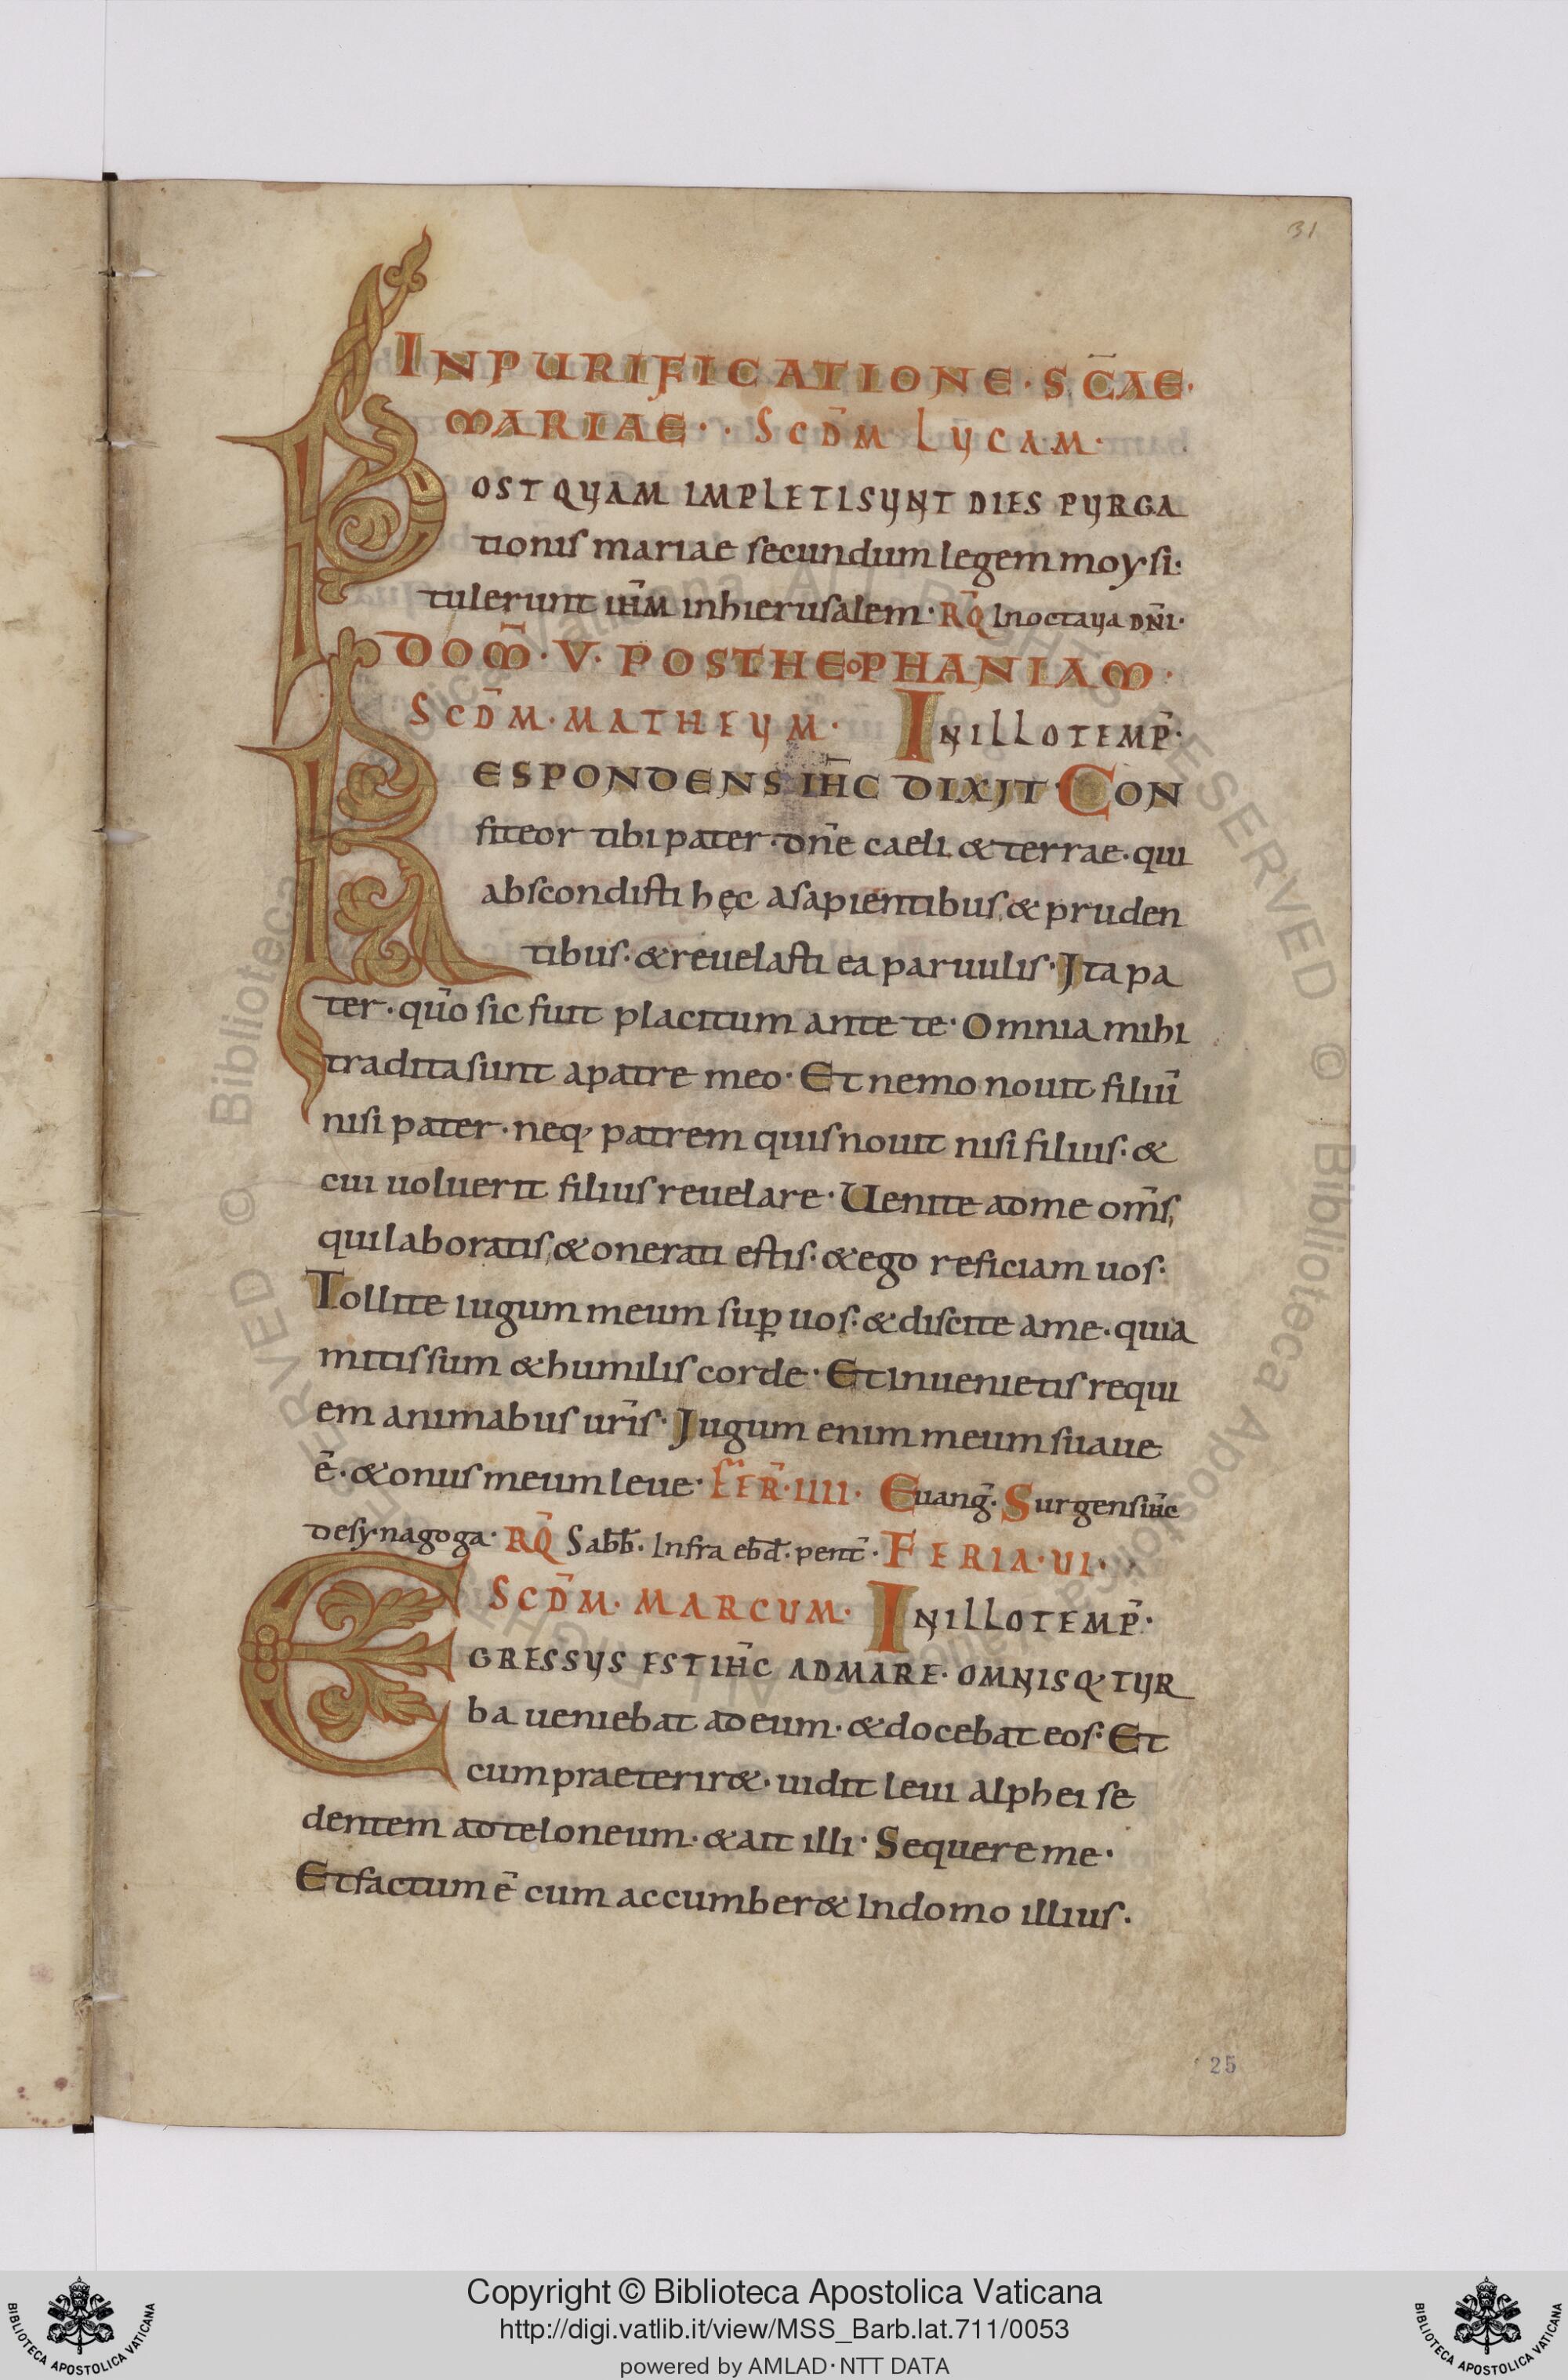 31
IN PURIFICATIONE · SC̄AE ·
MARIAE · · SCD̄M LUCAM ·
POSTQUAM IMPLETI SUNT DIES PURGA
tionis mariae secundum legem moysi·
tulerunt ih̄m in hierusalem · RQ̄ In octaua dn̄i·
DOM̄ · V · POST THEOPHANIAM ·
SCD̄M · MATHEUM · IN ILLO TEMP̄ ·
RESPONDENS IH̄C DIXIT · CON
fiteor tibi pater · dn̄e caeli & terrae · qui
abscondisti hęc a sapientibus, & pruden
tibus · & reuelasti ea paruulis · Ita pa
ter · qūo sic fuit placitum ante te · Omnia mihi
tradita sunt a patre meo · Et nemo nouit filiū
nisi pater · neq; patrem quis nouit nisi filius · &
cui uoluerit filius reuelare · Uenite ad me om̄s,
qui laboratis, & onerati estis · & ego reficiam uos ·
Tollite iugum meum suꝑ uos · & discite a me · quia
mitis sum & humilis corde · Et inuenietis requi
em animabus ur̄is · Iugum enim meum suaue
ē · & onus meum leue · FER̄ · IIII · Euanḡ · Surgens ih̄c
de synagoga · RQ̄ Sab̄b̄ · Infra eb̄d̄ · pent̄ · FERIA · VI ·
SCD̄M · MARCUM · IN ILLO TEMP̄ ·
EGRESSUS EST IH̄C AD MARE · OMNISQ; TUR
ba ueniebat ad eum · & docebat eos · Et
cum praeterir& · uidit leui alphei se
dentem ad teloneum · & ait illi · Sequere me ·
Et factum ē cum accumber& In domo illius ·
25
Copyright © Biblioteca Apostolica Vaticana
http://digi.vatlib.it/view/MSS_Barb.lat.711/0053
powered by AMLAD·NTT DATA
BIBLIOTECA APOSTOLICA VATICANA
BIBLIOTECA APOSTOLICA VATICANA